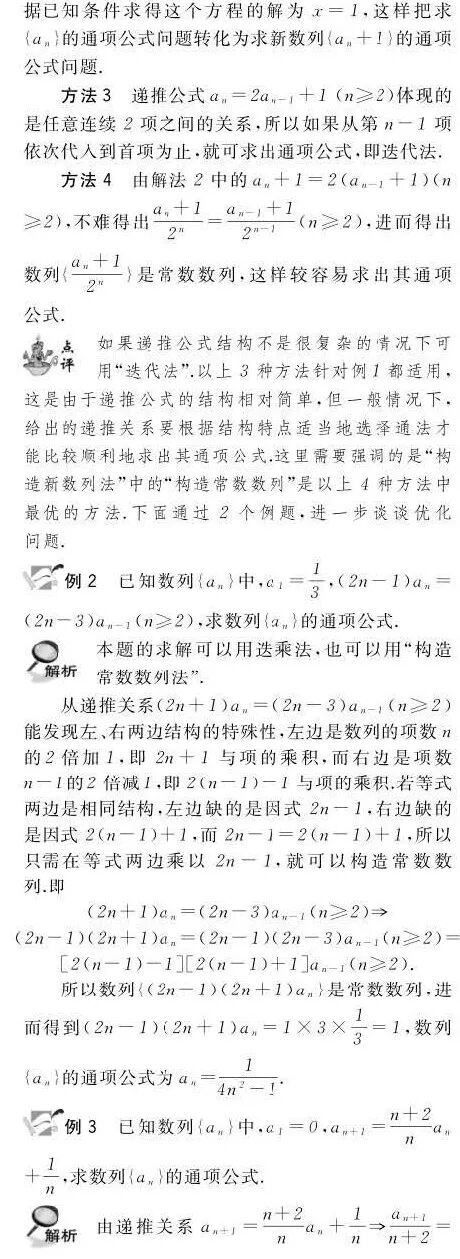 据已知条件求得这个方程的解为 x=1,这样把求
{aₙ}的通项公式问题转化为求新数列{aₙ+1}的通项
公式问题.
方法3 递推公式 aₙ=2aₙ₋₁+1 (n≥2)体现的
是任意连续 2 项之间的关系,所以如果从第 n-1 项
依次代入到首项为止,就可求出通项公式,即迭代法.
方法4 由解法 2 中的 aₙ+1=2(aₙ₋₁+1)(n
≥2),不难得出 (aₙ+1)/2ⁿ=(aₙ₋₁+1)/2ⁿ⁻¹ (n≥2),进而得出
数列{(aₙ+1)/2ⁿ}是常数数列,这样较容易求出其通项
公式.
点评 如果递推公式结构不是很复杂的情况下可
用“迭代法”.以上 3 种方法针对例1 都适用,
这是由于递推公式的结构相对简单,但一般情况下,
给出的递推关系要根据结构特点适当地选择通法才
能比较顺利地求出其通项公式.这里需要强调的是“构
造新数列法”中的“构造常数数列”是以上 4 种方法中
最优的方法.下面通过 2 个例题,进一步谈谈优化
问题.
例2 已知数列{aₙ}中,a₁=1/3,(2n-1)aₙ=
(2n-3)aₙ₋₁(n≥2),求数列{aₙ}的通项公式.
解析 本题的求解可以用迭乘法,也可以用“构造
常数数列法”.
从递推关系(2n+1)aₙ=(2n-3)aₙ₋₁(n≥2)
能发现左、右两边结构的特殊性,左边是数列的项数 n
的 2 倍加 1,即 2n+1 与项的乘积,而右边是项数
n-1的2 倍减1,即 2(n-1)-1 与项的乘积.若等式
两边是相同结构,左边缺的是因式 2n-1,右边缺的
是因式 2(n-1)+1,而 2n-1=2(n-1)+1,所以
只需在等式两边乘以 2n-1,就可以构造常数数
列.即
(2n+1)aₙ=(2n-3)aₙ₋₁(n≥2)⇒
(2n-1)(2n+1)aₙ=(2n-1)(2n-3)aₙ₋₁(n≥2)=
[2(n-1)-1][2(n-1)+1]aₙ₋₁(n≥2).
所以数列{(2n-1)(2n+1)aₙ}是常数数列,进
而得到(2n-1)(2n+1)aₙ=1×3×1/3=1,数列
{aₙ}的通项公式为 aₙ=1/(4n²-1).
例3 已知数列{aₙ}中,a₁=0,aₙ₊₁=(n+2)/n aₙ
+1/n,求数列{aₙ}的通项公式.
解析 由递推关系 aₙ₊₁=(n+2)/n aₙ+1/n⇒aₙ₊₁/(n+2)=